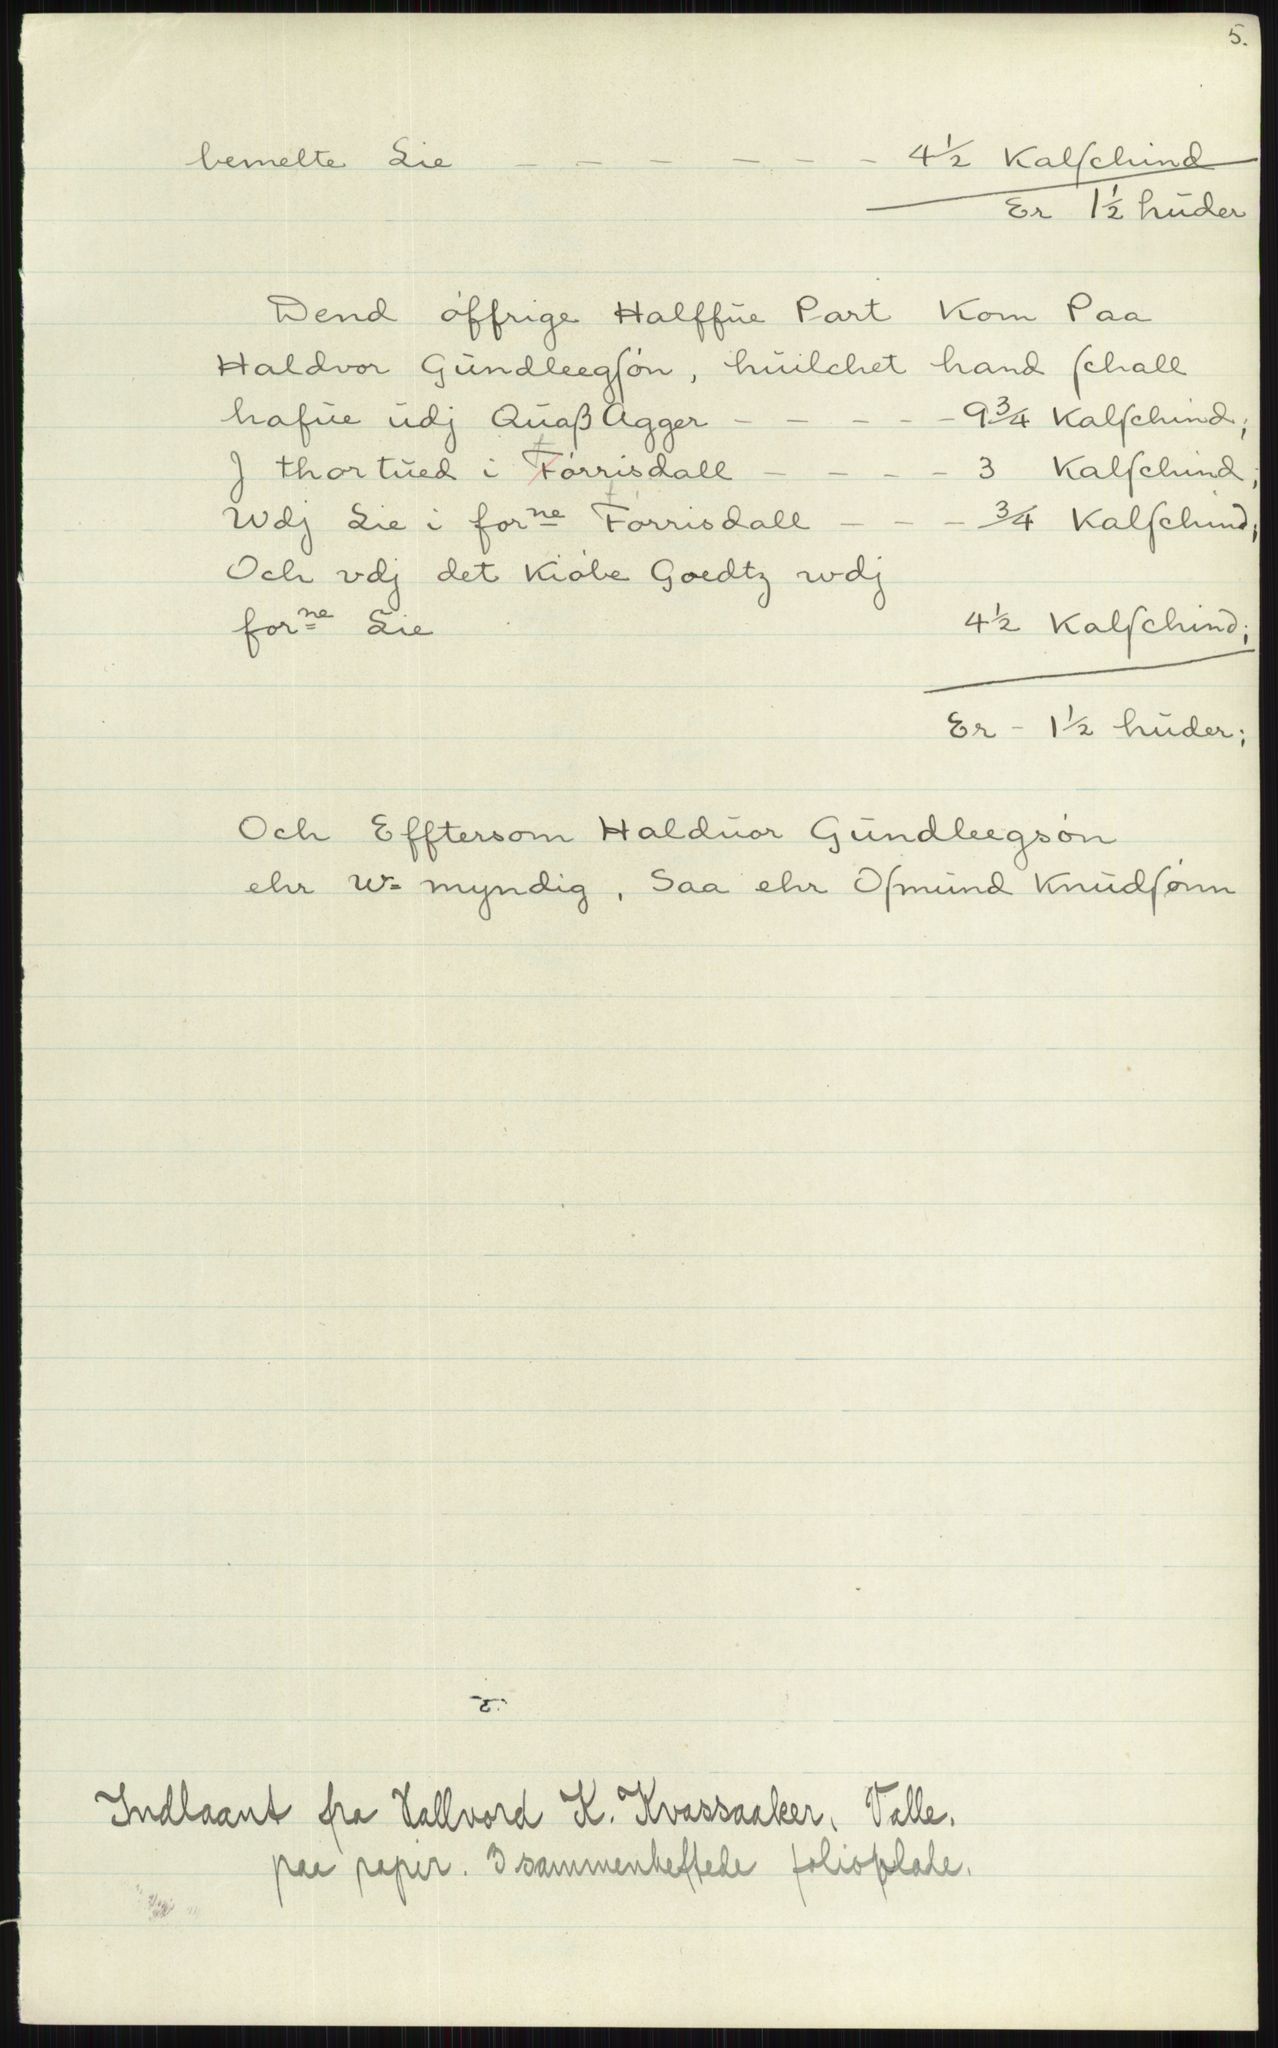 5.
bemelte Lie - - - - - - - 4½ Kalſchind
Er 1½ hūder
Dend óffrige Halffūe Part Kom Paa
Haldvor Gūndleegſón, hūilchet hand ſchall
hafūe ūdj Qūaß Agger - - - - - 9¾ Kalſchind;
J thortūed i Fórrisdall - - - - 3 Kalſchind;
Wdj Lie i forne Fórrisdall - - - ¾ Kalſchind;
Och vdj det Kióbe Goedtz wdj
forne Lie 4½ Kalſchind;
Er - 1½ hūder;
Och Efftersom Haldūor Gūndleegsón
ehr W= myndig, Saa ehr Oſmūnd Knūdſónn
Indlaant fra Hallvord K. Kvassaaker, Valle.
paa papir. 3 sammenheftede folioblade.